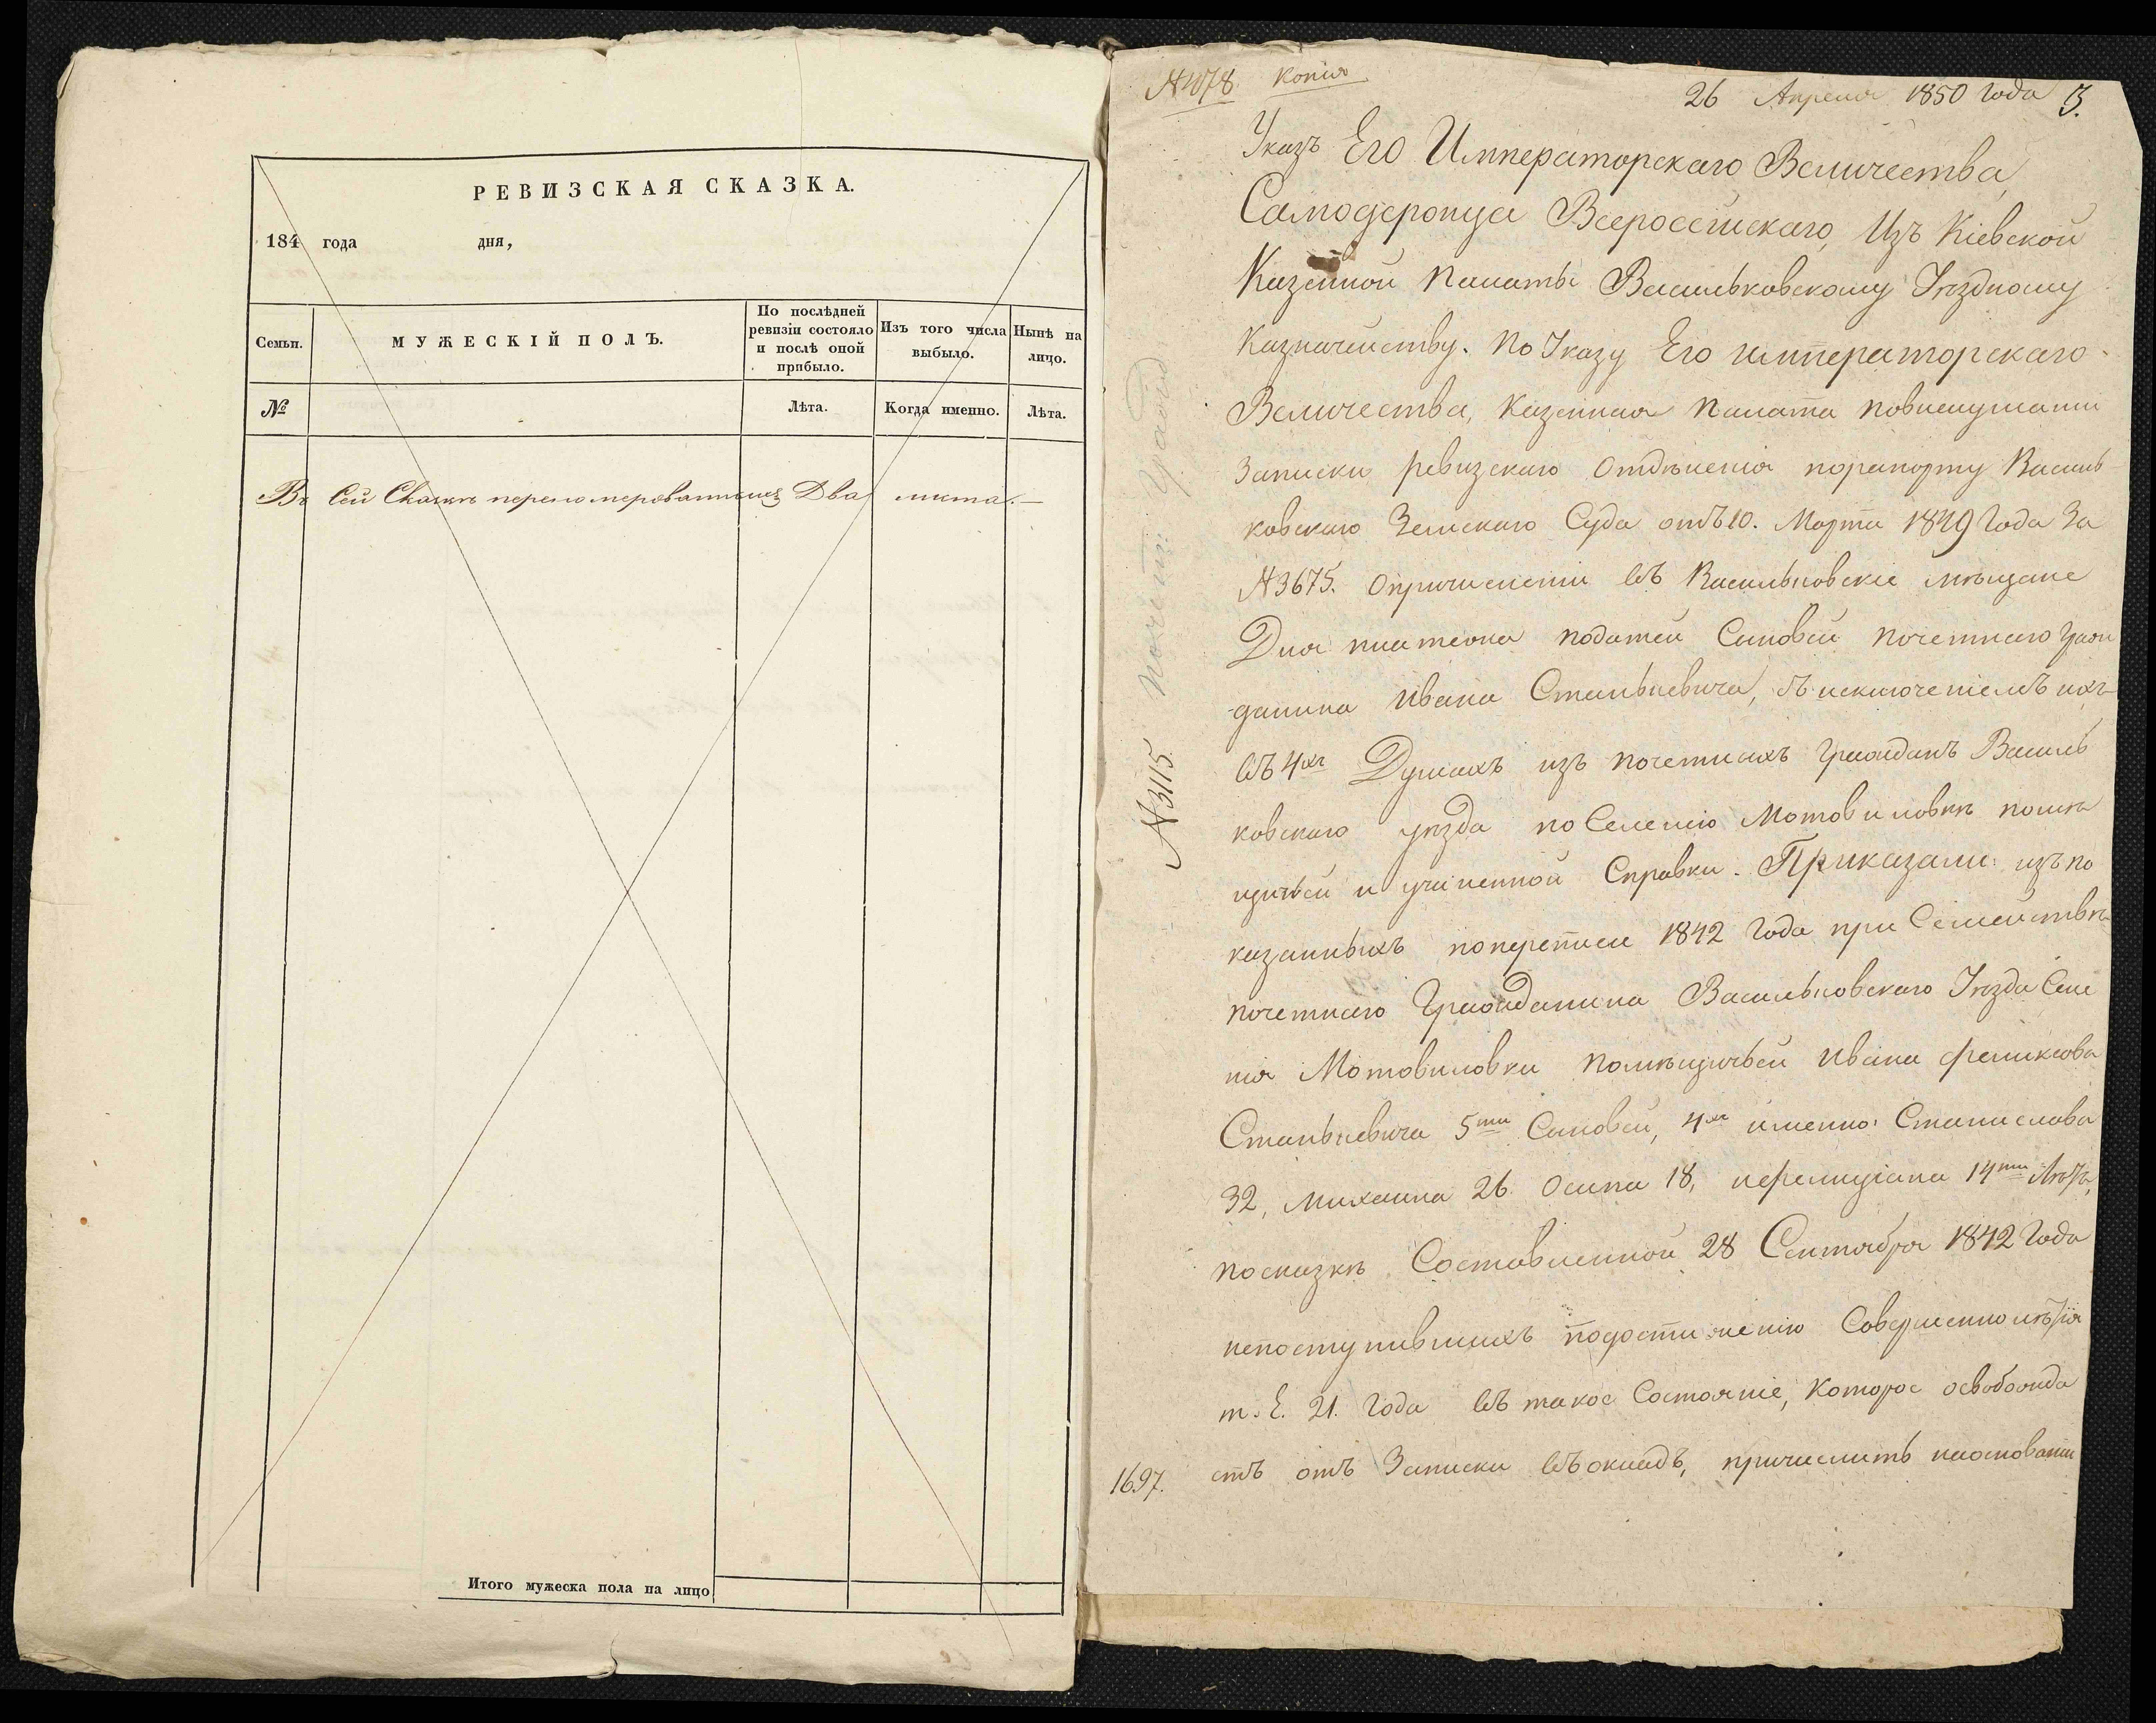 РЕВИЗСКАЯ СКАЗКА.
184 года дня,
Семьи.
МУЖЕСКІЙ ПОЛЪ.
По послѣдней ревизіи состояло и послѣ оной прибыло.
Изъ того числа выбыло.
Нынѣ на лицо.
№
Лѣта.
Когда именно.
Лѣта.
Въ Сей Сказкѣ перенумерованныхъ Два листа.
Итого мужеска пола на лицо
N 1078 Копія
26 Апреля 1850 года 3.
Указъ Его Императорскаго Величества
Самодержца Всероссійскаго, Изъ Кіевской
Казенной Палаты Васильковскому Уѣздному
Казначейству. По Указу Его Императорскаго
Величества, Казенная Палата по выслушаніи
Записки ревизскаго Отдѣленія по рапорту Василь
ковскаго Земскаго Суда отъ 10. Марта 1849 года За
N 3675. О причисленіи въ Васильковскіе мѣщане
Для платежа податей Сыновей почетнаго граж
данина Ивана Станкевича, съ исключеніемъ ихъ
въ 4хъ Душахъ изъ почетныхъ Гражданъ Василь
ковскаго уѣзда по Селенію Мотовиловкѣ помѣ
щичьей и учиненной Справки. Приказали: изъ по
казанныхъ по переписи 1842 года при Семействѣ
почетнаго Гражданина Васильковскаго Уѣзда Селе
нія Мотовиловки помѣщичьей Ивана Феликсова
Станкевича 5ти Сыновей, 4хъ именно: Станислава
32, Михаила 26 Осипа 18, и Фелиціана 14ти Лѣтъ,
по сказкѣ Составленной 28 Сентября 1842 Года
непоступившихъ по достиженію Совершеннолѣтія
т. Е. 21. Года въ такое Состояніе, Которое освобожда
етъ отъ Записки въ окладъ, причислить на основаніи
1697.
N 3115
Почетн: Гражд